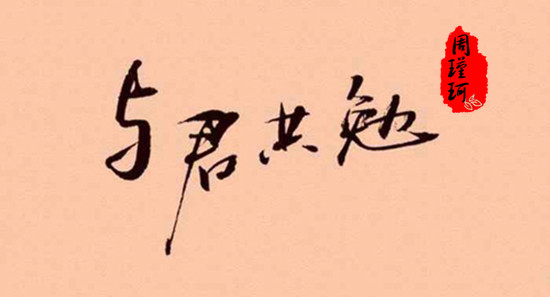 与君共勉
周瑾珂